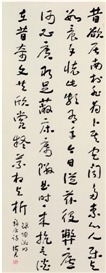 昔欲居南村非為卜其宅聞多素心人樂與
數晨夕懷此頗有年今日從茲役敝廬
何必廣取足蔽床席鄰曲時時來抗言談
在昔奇文共欣賞疑義相與析